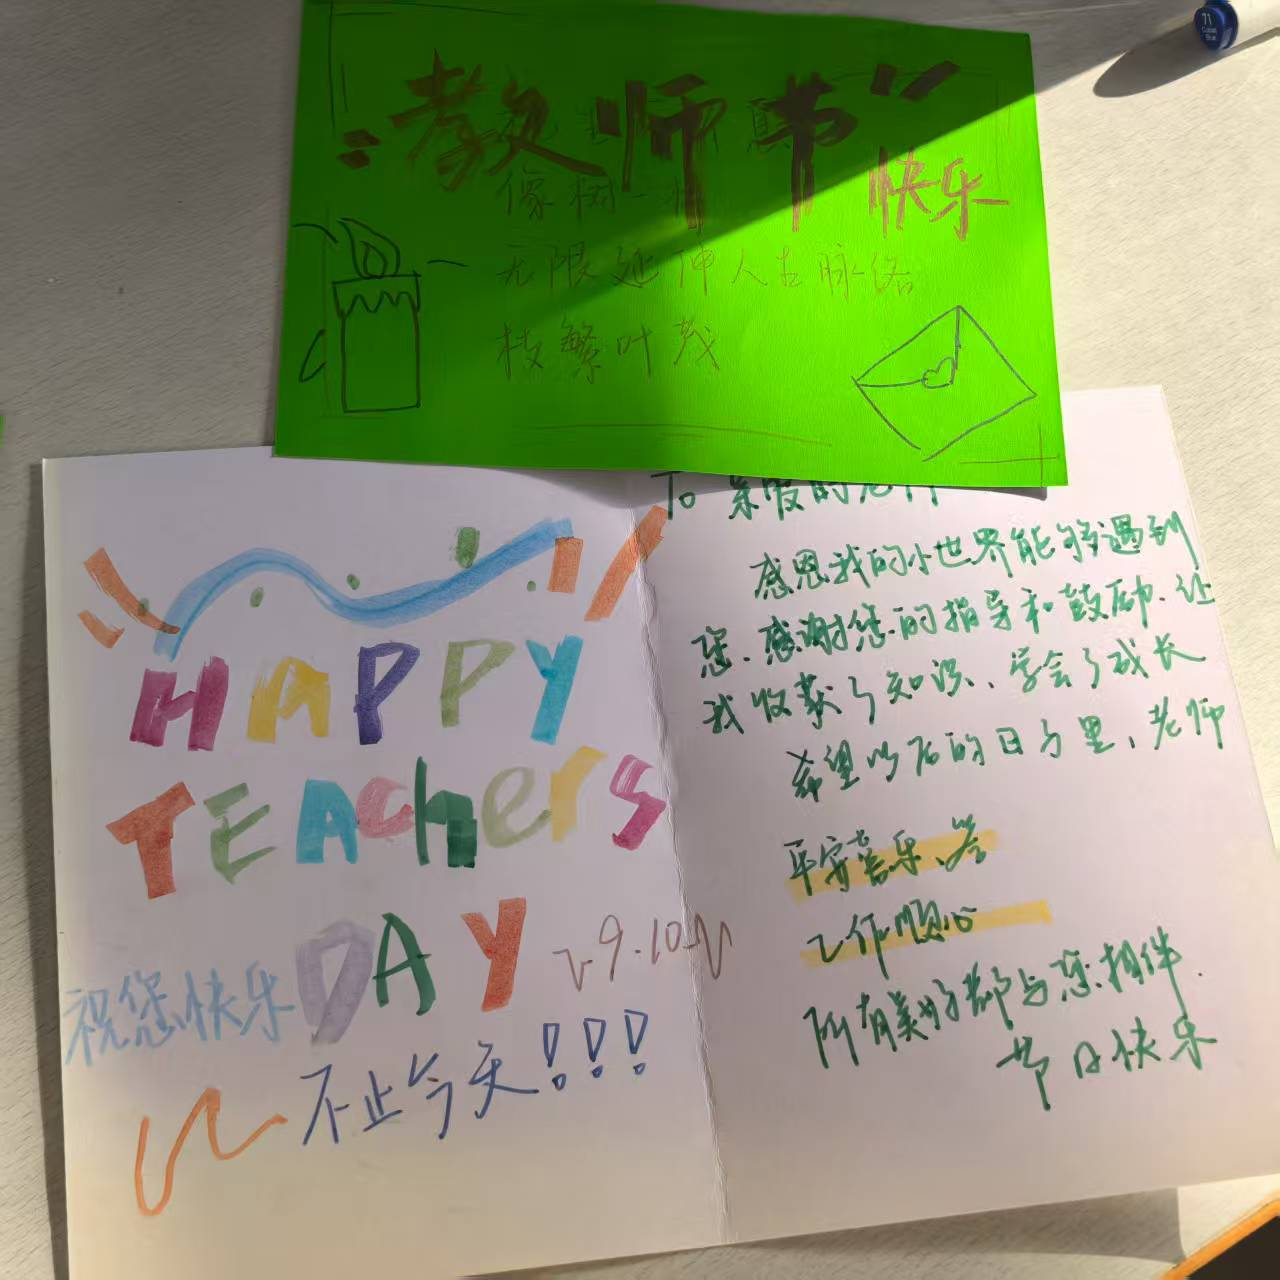 "教师节"
快乐
像树一样
无限延伸人去脉络
枝繁叶茂
HAPPY
TEAcherS
DAY
9.10
祝您快乐
不止今天!!!
To 亲爱的老师
感恩我的小世界能够遇到
您、感谢您的指导和鼓励、让
我收获了知识、学会了成长
希望以后的日子里、老师
平安喜乐、
工作顺心
所有美好都与您相伴.
节日快乐
71